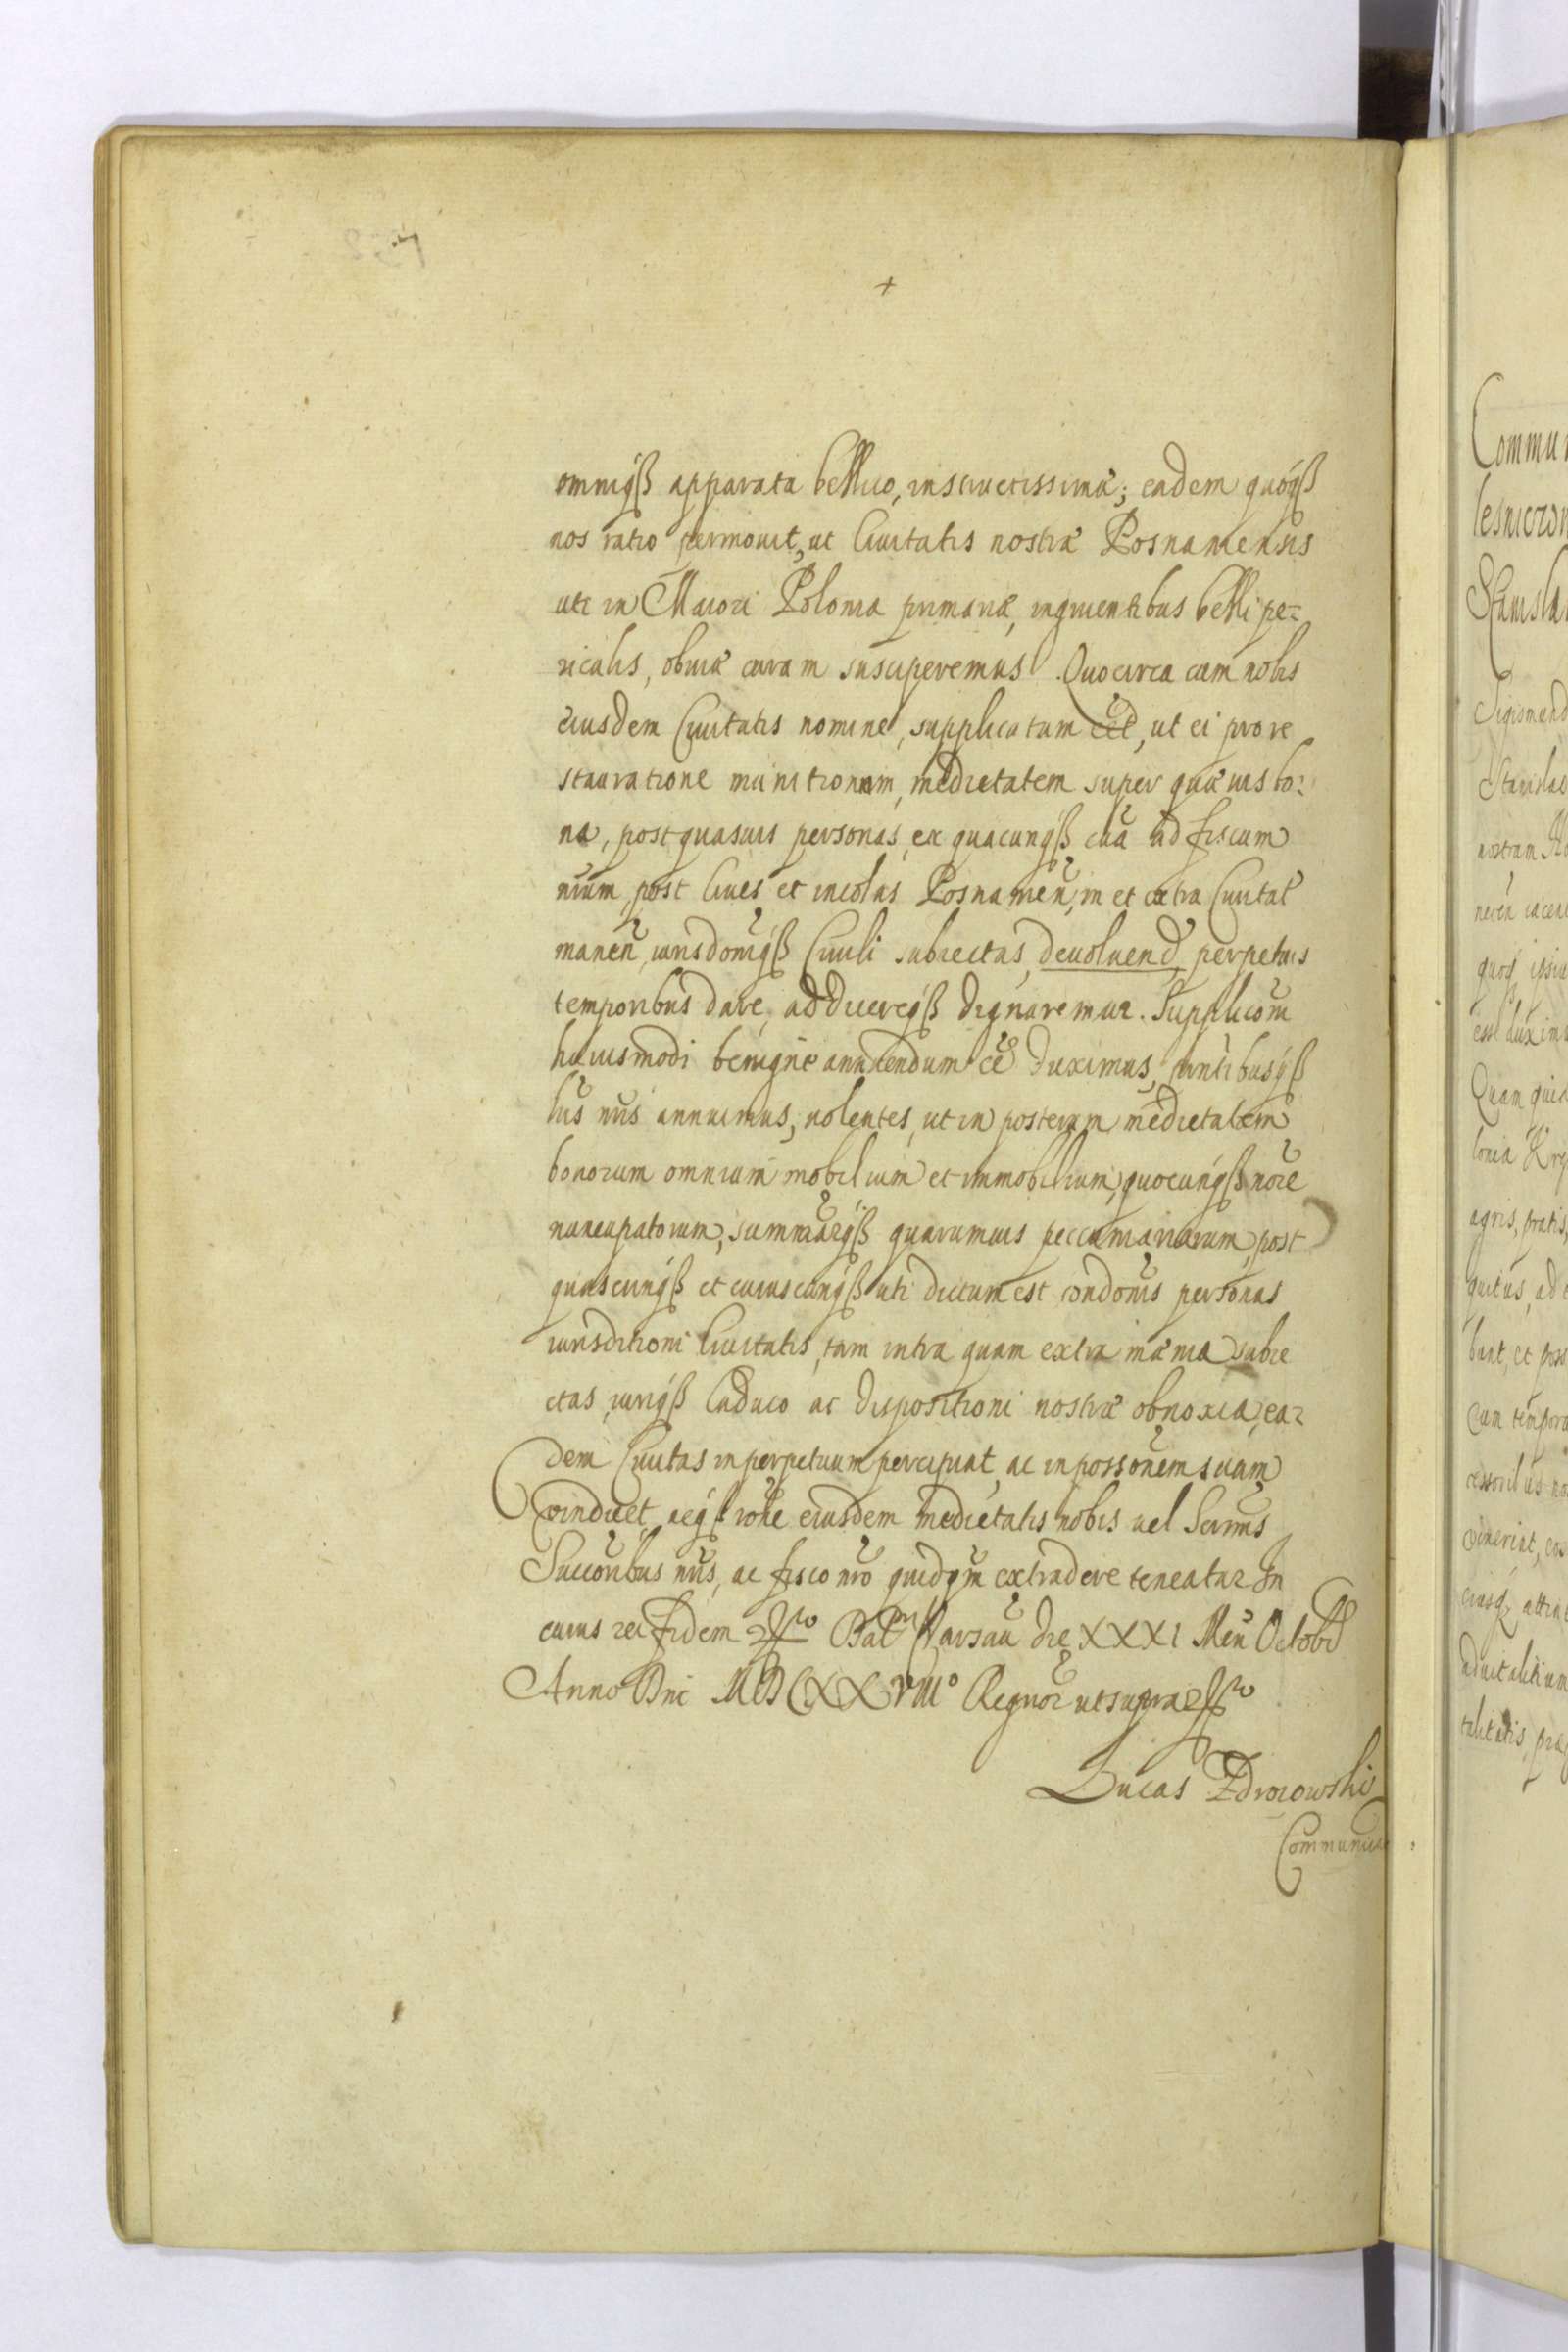 omniq́ꝫ apparatu bellico, instructissimæ; eadem quoq́ꝫ
nos ratio permouit, ut Ciuitatis nostræ Posnaniensis
uti in Maiori Polonia primariæ, ingruentibus belli pe-
riculis, obuiæ curam susciperemus. Quocirca cum nobis
eiusdem Ciuitatis nomine, supplicatum eēt, ut ei pro re
stauratione munitionum, medietatem super quæuis bo-
na, post quasuis personas, ex quacunq́ꝫ cūa ad fiscum
nr̄um, post Ciues et incolas Posnanieñ, in et extra Ciuitat̄
maneñ, iurisdoniq́ꝫ Ciuili subiectas, deuoluend, perpetuis
temporibus dare, adducereq́ꝫ dignaremur. Supplicōm
huiusmodi benignè annuendum eē duximus, p̄ntibusq́ꝫ
lr̄is nr̄is annuimus, uolentes, ut in posterum medietatem
bonorum omnium mobilium et immobilium, quocunq́ꝫ noīe
nuncupatorum, summarūq́ꝫ quarumuis peccuniariarum, post
quascunq́ꝫ et cuiuscunq́ꝫ uti dictum est condonīs personas
iurisditioni Ciuitatis, tam intra quam extra mænia subie
ctas, iuriq́ꝫ Caduco ac dispositioni nostræ obnoxia, ea-
dem Ciuitas in perpetuum percipiat, ac in possonēm suam
vindicet, neq́ꝫ rōne eiusdem medietatis nobis uel Sermīs
Succorībus nr̄is, ac fisco nr̄o quidq̄m extradere teneatur In
cuius rei fidem Dat̄ Varsaū die XXXI Meñ Octobr̄
Anno Dn̄i MDCXXVIII° Regnor̄ ut supra
Lucas Zdrozowski
Communi
Commun
Stanisla
Sigismund
Stanislas
nostram
quos ipsi
Quam quid
agris, pratis,
bunt, et poss
Cum tempora